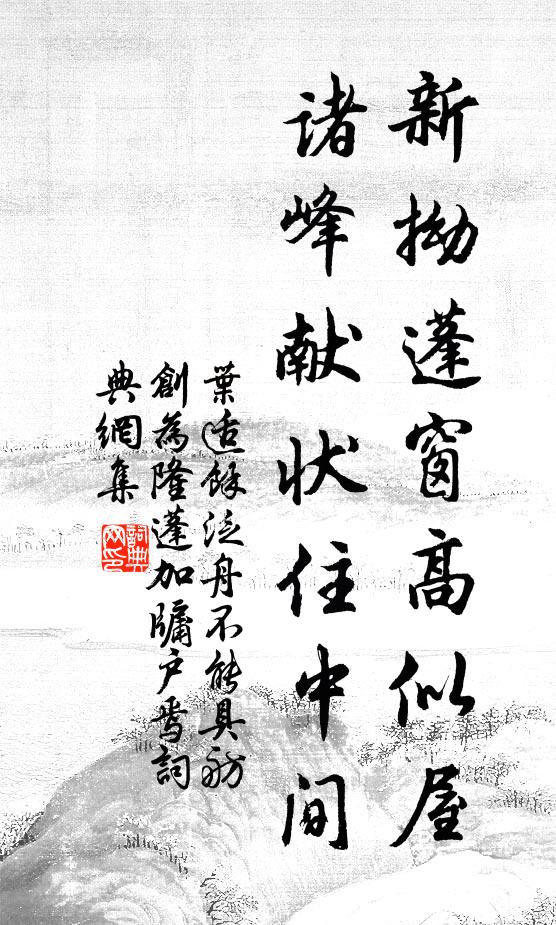 新拗蓬窗高似屋
诸峰献状住中间
葉适馀泛舟不能具舫
創為隆蓬加牖户焉詞
典網集
詞典網印